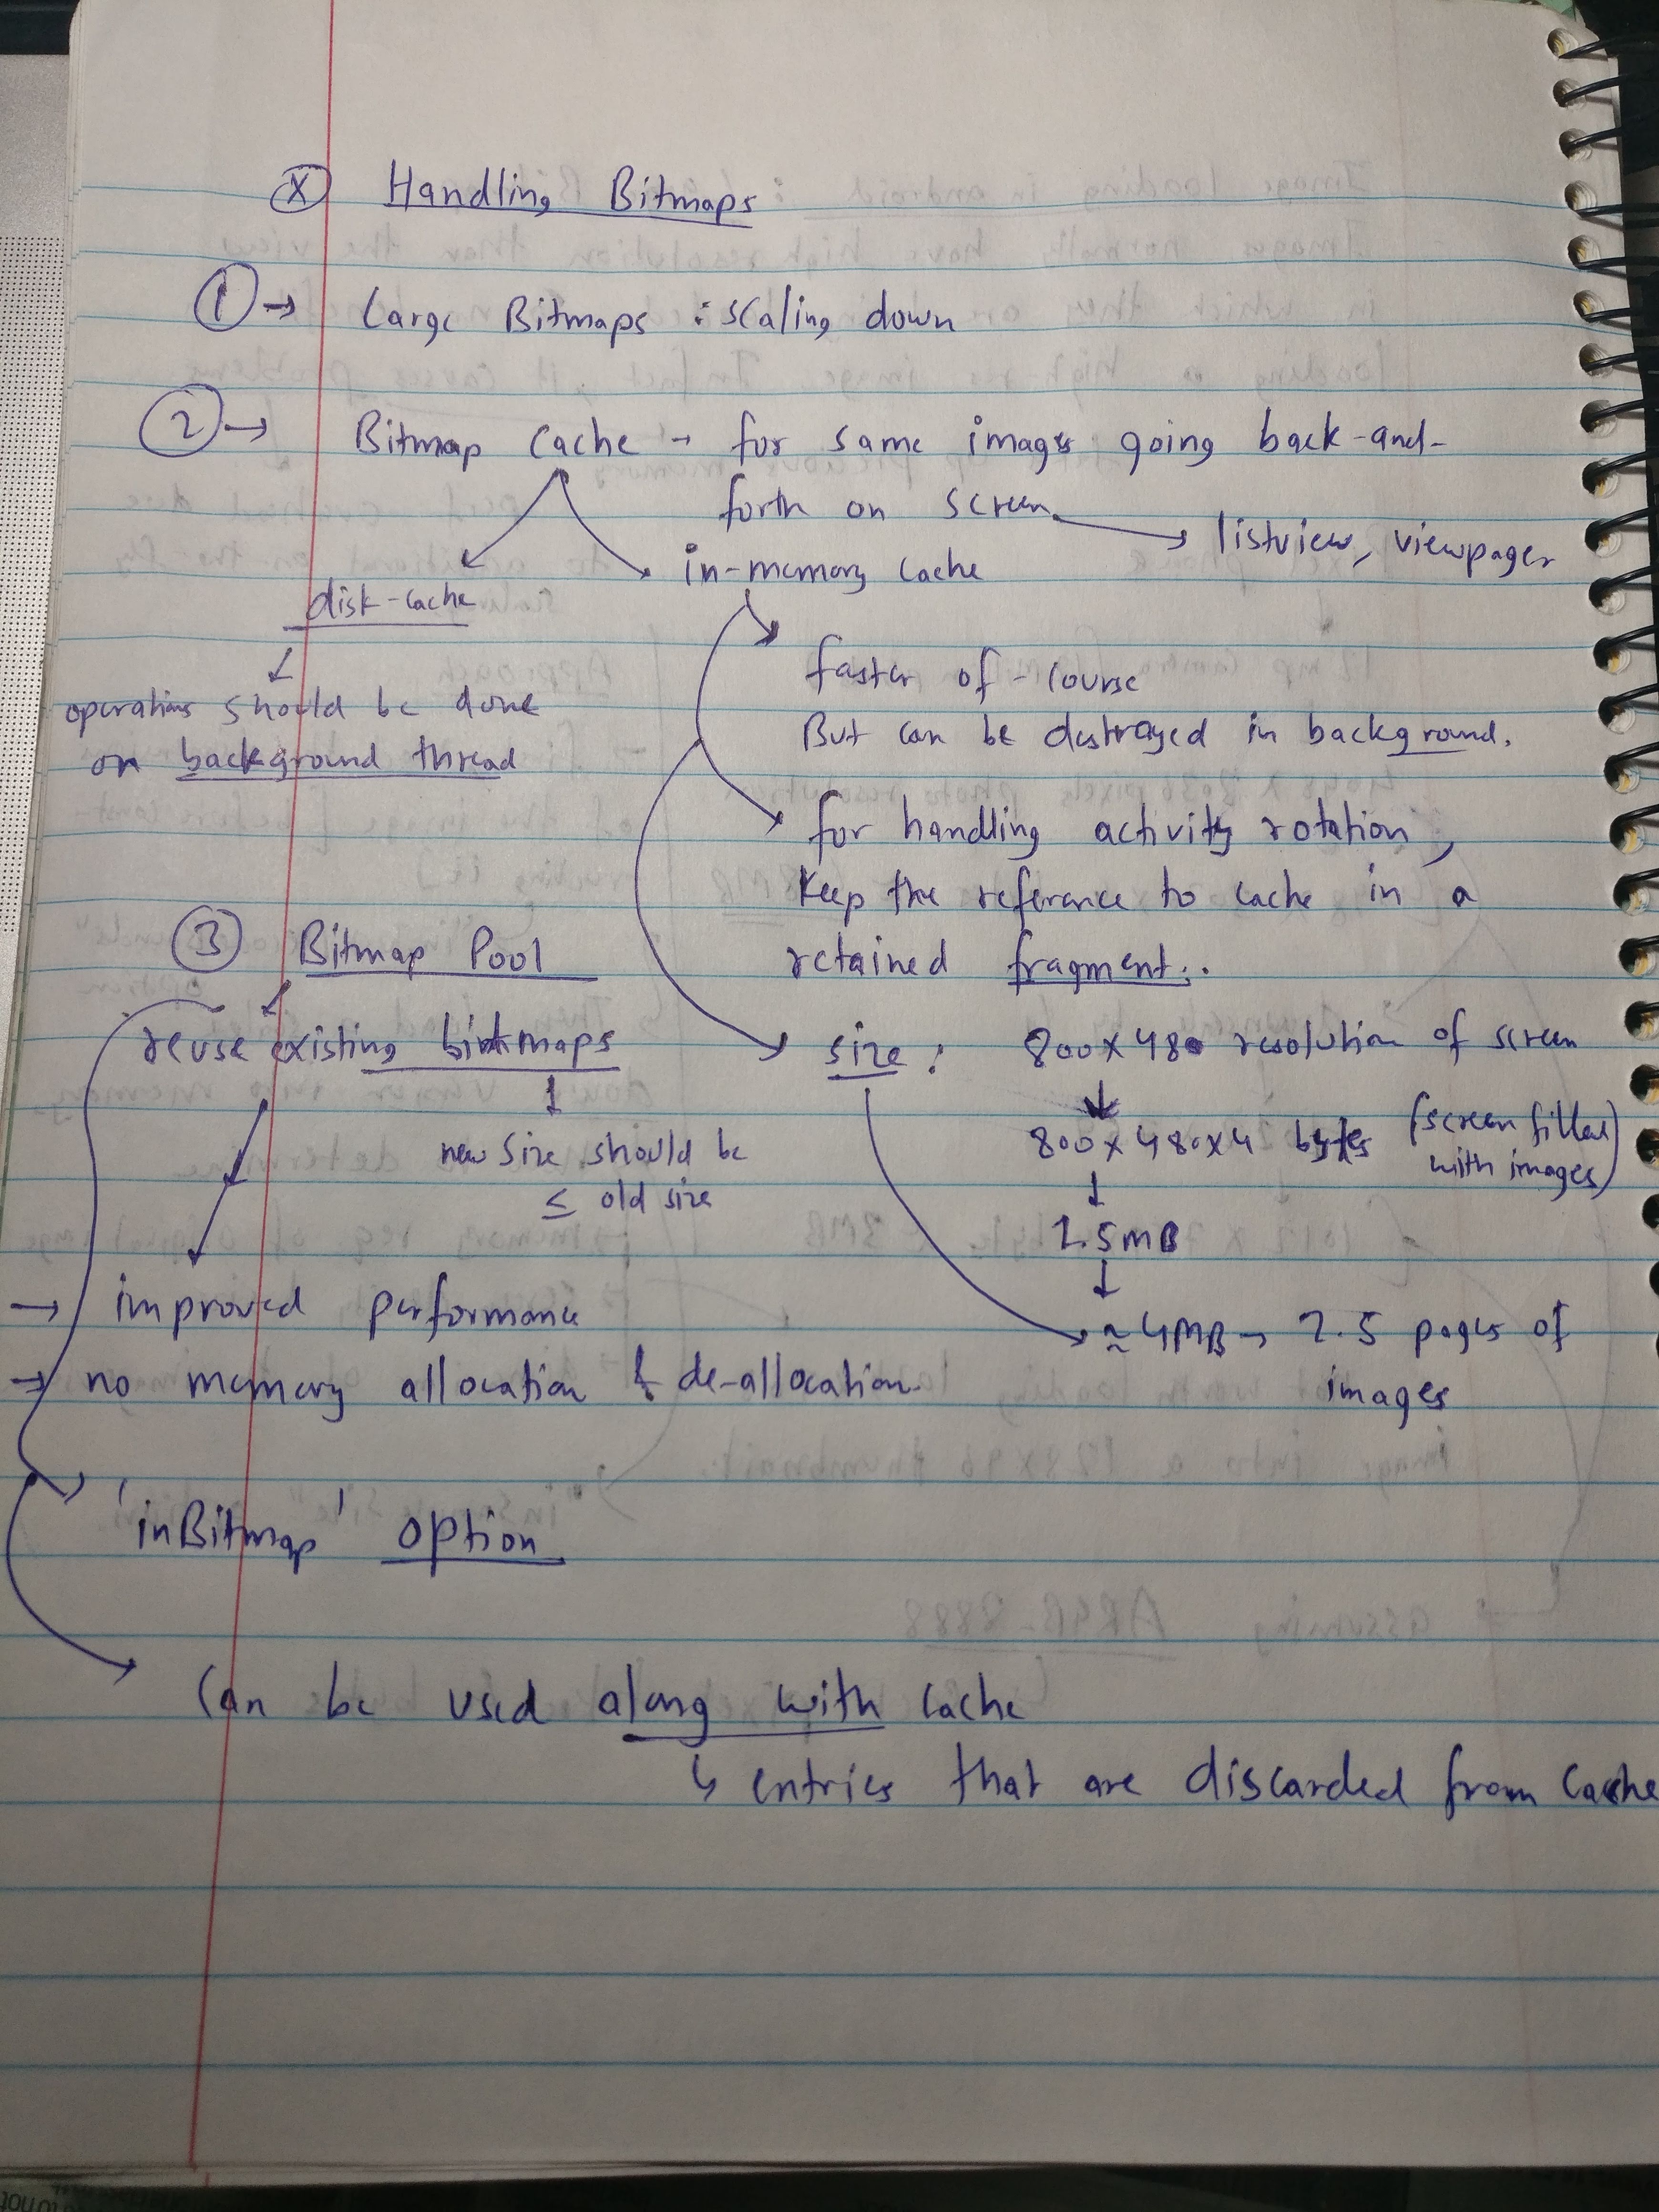 X Handling Bitmaps
1 → Large Bitmaps : scaling down
2 → Bitmap Cache → for same images going back-and-
forth on screen → listview, viewpager
in-memory cache
disk-cache
operations should be done
on background thread
faster of-course
But can be destroyed in background.
for handling activity rotation,
keep the reference to cache in a
retained fragment.
size : 800x480 resolution of screen
800x480x4 bytes (screen filled
with images)
1.5MB
≈ 4MB → 2.5 pages of
images
3 Bitmap Pool
reuse existing bitmaps
new size should be
≤ old size
→ improved performance
→ no memory allocation & de-allocation.
'inBitmap' option
Can be used along with cache
↳ entries that are discarded from cache